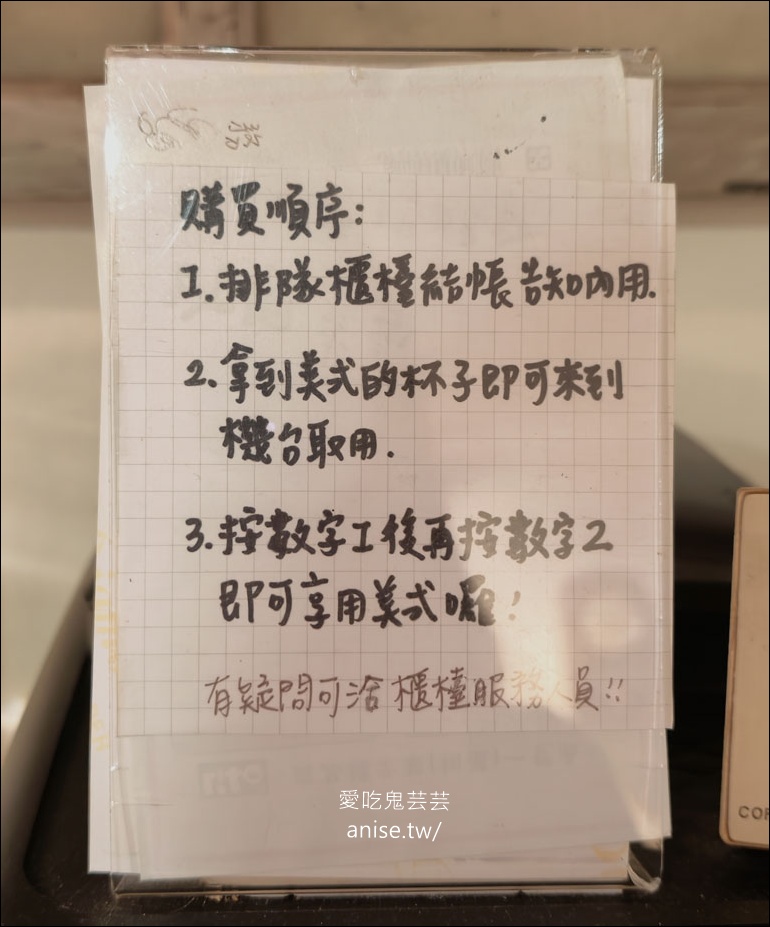 務
購買順序:
1.排隊櫃檯結帳告知內用.
2.拿到美式的杯子即可來到
機台取用.
3.按數字1後再按數字2
即可享用美式喔!
有疑問可洽櫃檯服務人員!!
愛吃鬼芸芸
anise.tw/